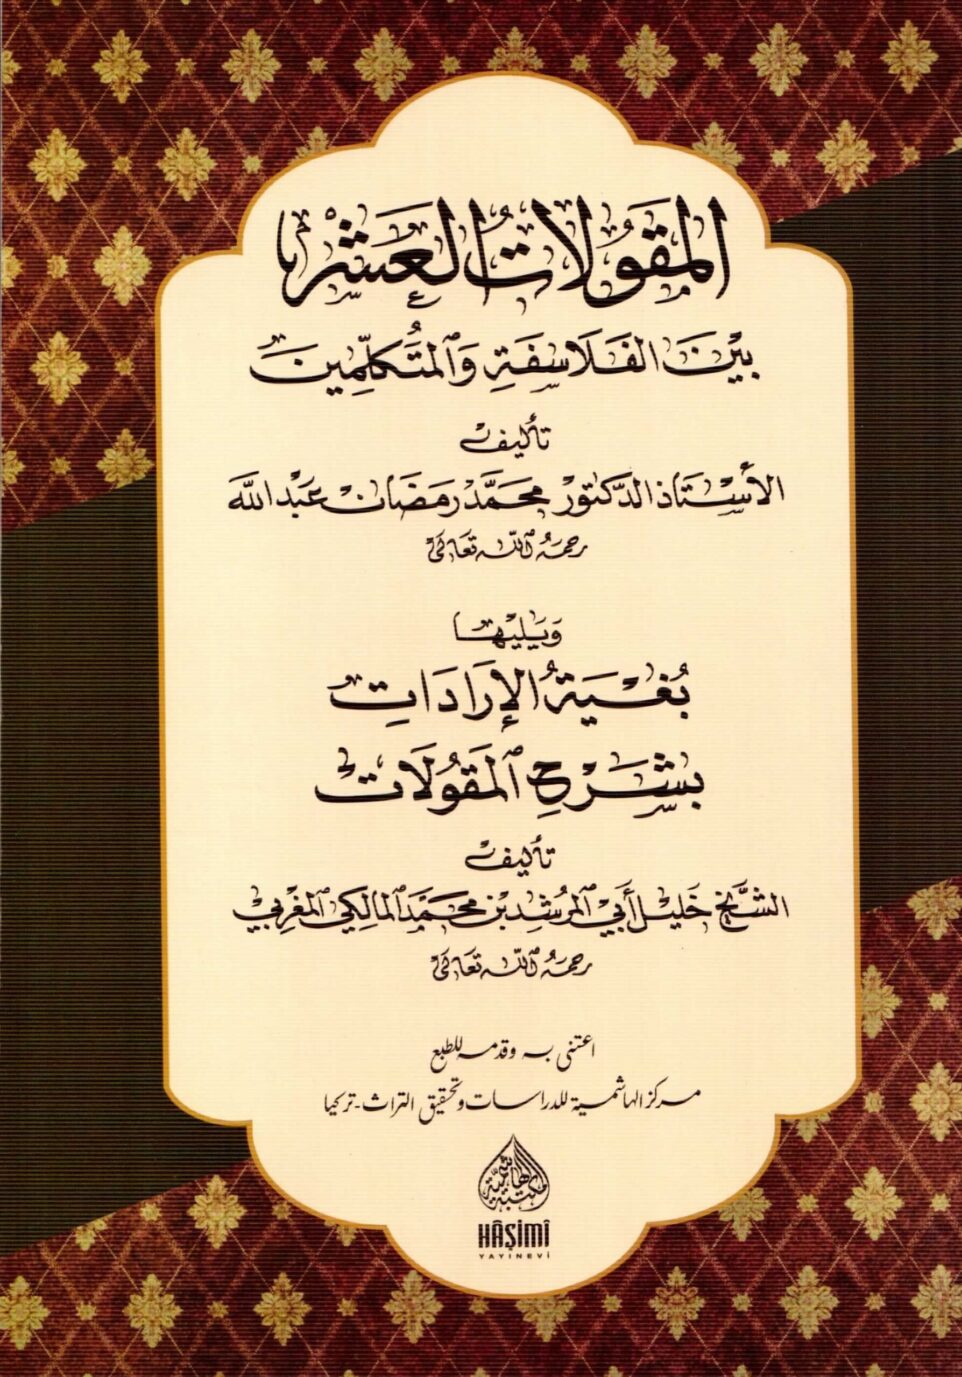 المَقُولَاتُ العَشْرُ
بَيْنَ الفَلَاسِفَةِ وَالمُتَكَلِّمِينَ
تأليف
الأستاذ الدكتور محمد رمضان عبد الله
رحمه الله تعالى
وَيَليها
بُغْيَةُ الإِرَادَاتِ
بِشَرْحِ المَقُولَاتِ
تأليف
الشَّيْخ خَليل أبي المرشد بن محمد المالكي المغربي
رحمه الله تعالى
اعتنى به وقدمه للطبع
مركز الهاشمية للدراسات وتحقيق التراث - تركيا
المكتبة الهاشمية
HÂŞİMİ
YAYINEVİ